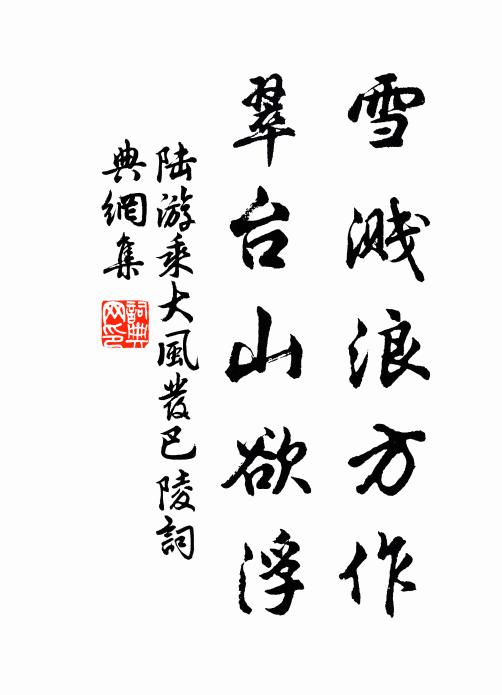 雪溅浪方作
翠台山欲浮
陆游乘大風发巴陵詞
典網集
詞典网印